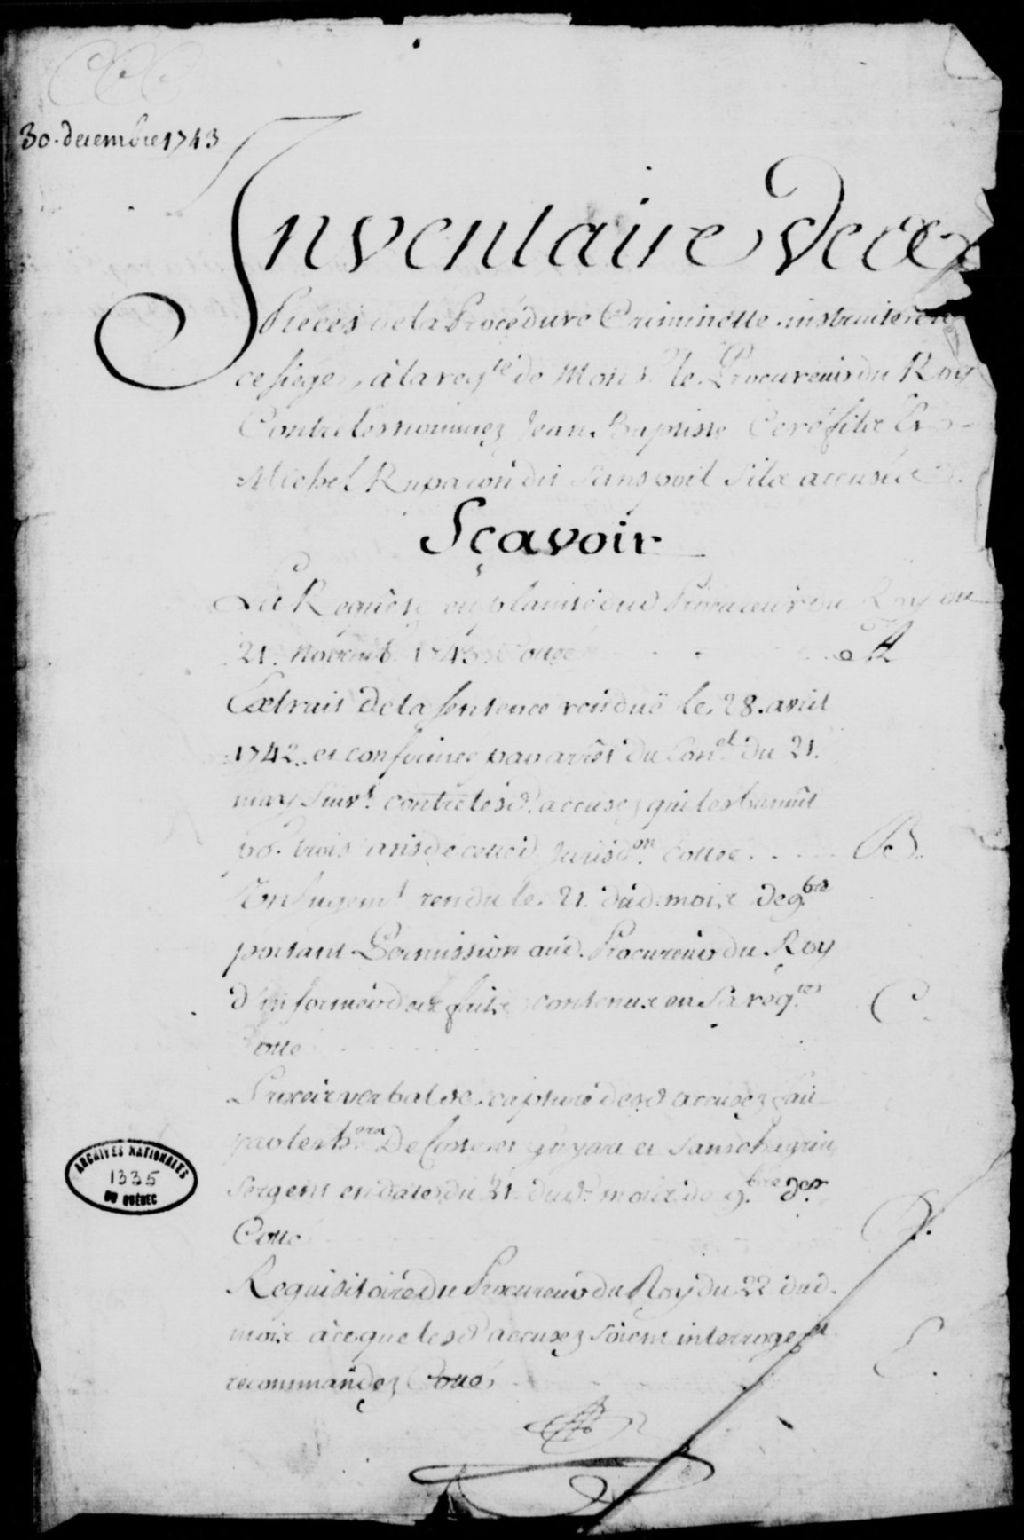 30. decembre 1743
Inventaire De
Pieces de la Procedure Criminelle instruite en
ce siege, a la reqte de Monsr. le Procureur du Roy
Contre les nommez Jean Baptiste
Michel dit Sanspoil accusez
Sçavoir
La Requête en plainte dud Procureur du Roy du
21. 1743 Cotté A
Extrait De la Sentence renduë le 28. avril
1742. et confirmée par arrêt du Conel. du 21.
may Suivt. contre lesd. accusez qui les bannit
po. trois ans de cetted. Jurisdon. Cotté B.
Son Jugemt rendu le 21. dud. mois de 9bre
portant Permission aud. Procureur du Roy
d'informer des faits contenus en Sa reqte. C.
Cotté
Procez verbal de capture desd accusez fait
par les De et
Sergent en date du 21. dud. mois de 9.bre der.
Cotté D.
Requisitoire du Procureur du Roy du 22 dud.
mois a ce que lesd accusez soient interrogez et
recommandez Cotté E.
ARCHIVES NATIONALES
1335
DU QUÉBEC